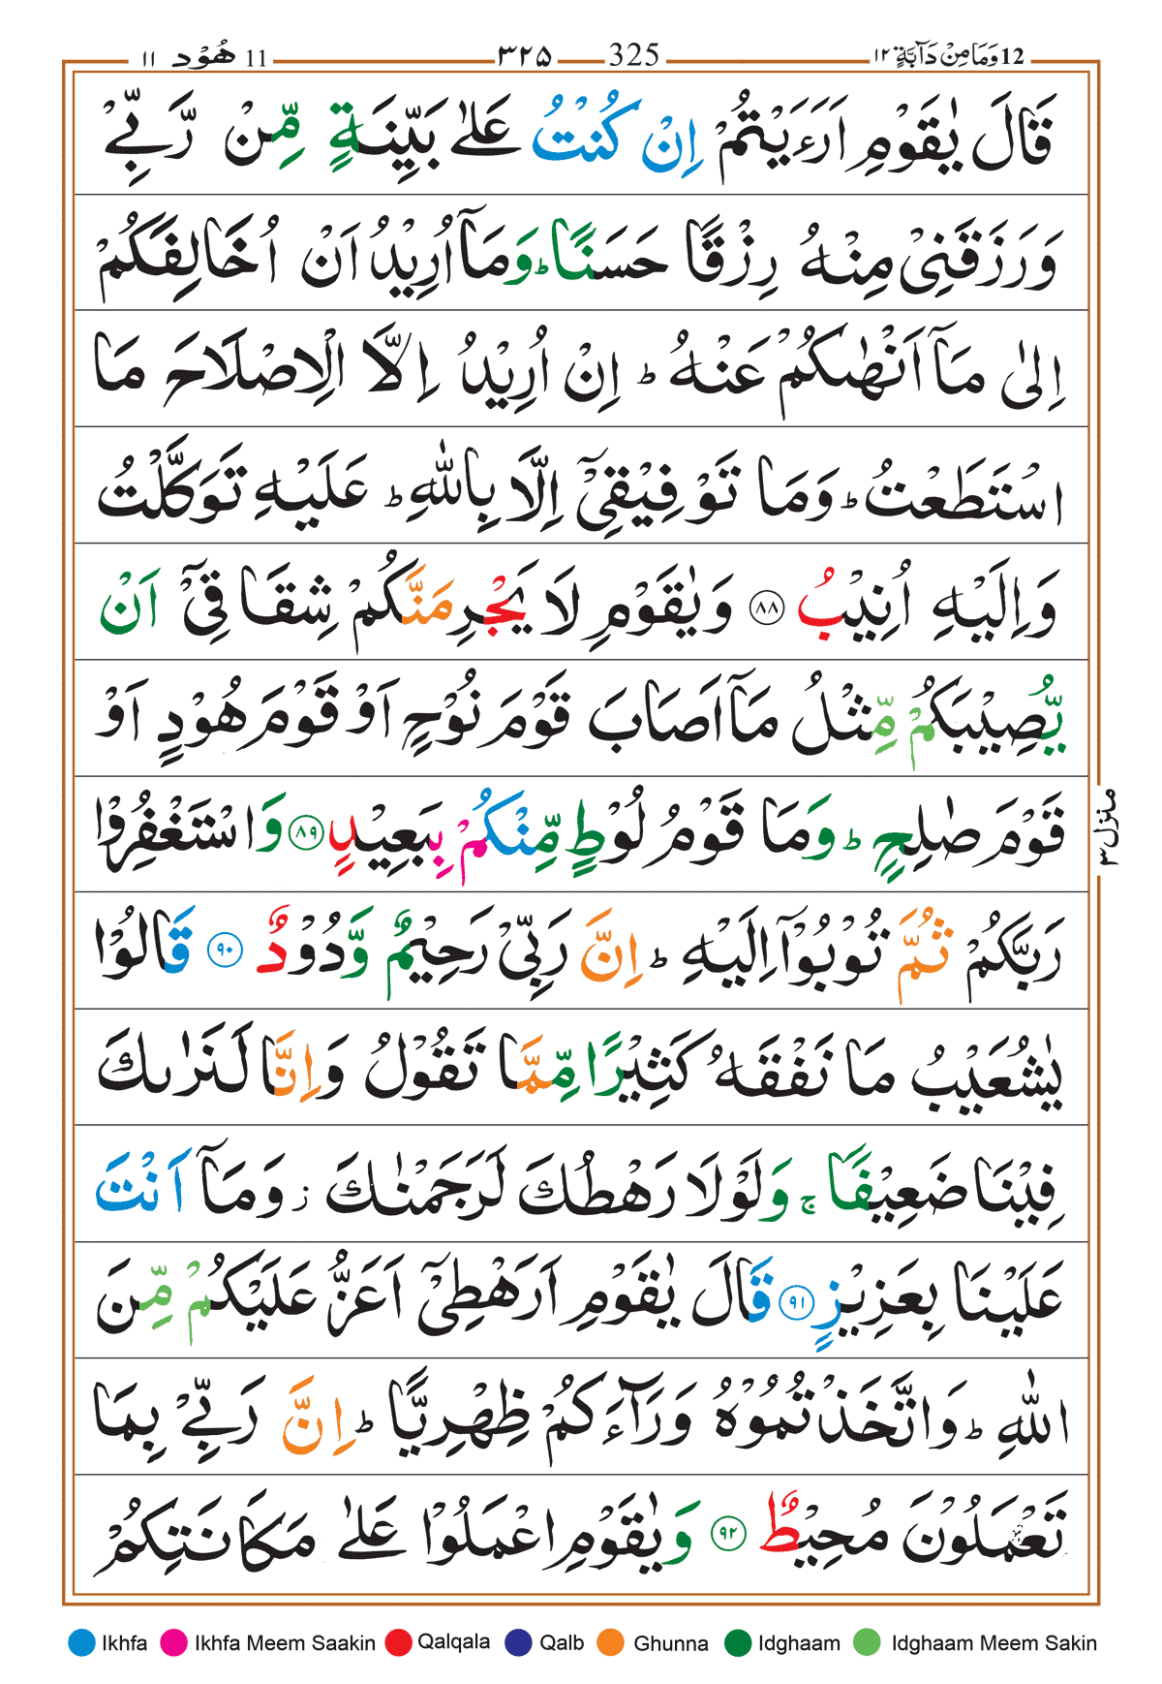 12 وَمَا مِنْ دَآبَّةٍ ١٢ 325 ٣٢٥ 11 هُوْد ١١
قَالَ يٰقَوْمِ اَرَءَيْتُمْ اِنْ كُنْتُ عَلٰى بَيِّنَةٍ مِّنْ رَّبِّيْ
وَرَزَقَنِيْ مِنْهُ رِزْقًا حَسَنًا ؕ وَمَاۤ اُرِيْدُ اَنْ اُخَالِفَكُمْ
اِلٰى مَاۤ اَنْهٰىكُمْ عَنْهُ ؕ اِنْ اُرِيْدُ اِلَّا الْاِصْلَاحَ مَا
اسْتَطَعْتُ ؕ وَمَا تَوْفِيْقِيْۤ اِلَّا بِاللّٰهِ ؕ عَلَيْهِ تَوَكَّلْتُ
وَاِلَيْهِ اُنِيْبُ ﴿٨٨﴾ وَيٰقَوْمِ لَا يَجْرِمَنَّكُمْ شِقَاقِيْۤ اَنْ
يُّصِيْبَكُمْ مِّثْلُ مَاۤ اَصَابَ قَوْمَ نُوْحٍ اَوْ قَوْمَ هُوْدٍ اَوْ
قَوْمَ صٰلِحٍ ؕ وَمَا قَوْمُ لُوْطٍ مِّنْكُمْ بِبَعِيْدٍ ﴿٨٩﴾ وَاسْتَغْفِرُوْا
رَبَّكُمْ ثُمَّ تُوْبُوْۤا اِلَيْهِ ؕ اِنَّ رَبِّيْ رَحِيْمٌ وَّدُوْدٌ ﴿٩٠﴾ قَالُوْا
يٰشُعَيْبُ مَا نَفْقَهُ كَثِيْرًا مِّمَّا تَقُوْلُ وَاِنَّا لَنَرٰىكَ
فِيْنَا ضَعِيْفًا ۚ وَلَوْلَا رَهْطُكَ لَرَجَمْنٰكَ ز وَمَاۤ اَنْتَ
عَلَيْنَا بِعَزِيْزٍ ﴿٩١﴾ قَالَ يٰقَوْمِ اَرَهْطِيْۤ اَعَزُّ عَلَيْكُمْ مِّنَ
اللّٰهِ ؕ وَاتَّخَذْتُمُوْهُ وَرَآءَكُمْ ظِهْرِيًّا ؕ اِنَّ رَبِّيْ بِمَا
تَعْمَلُوْنَ مُحِيْطٌ ﴿٩٢﴾ وَيٰقَوْمِ اعْمَلُوْا عَلٰى مَكَانَتِكُمْ
منزل ٣
Ikhfa Ikhfa Meem Saakin Qalqala Qalb Ghunna Idghaam Idghaam Meem Sakin